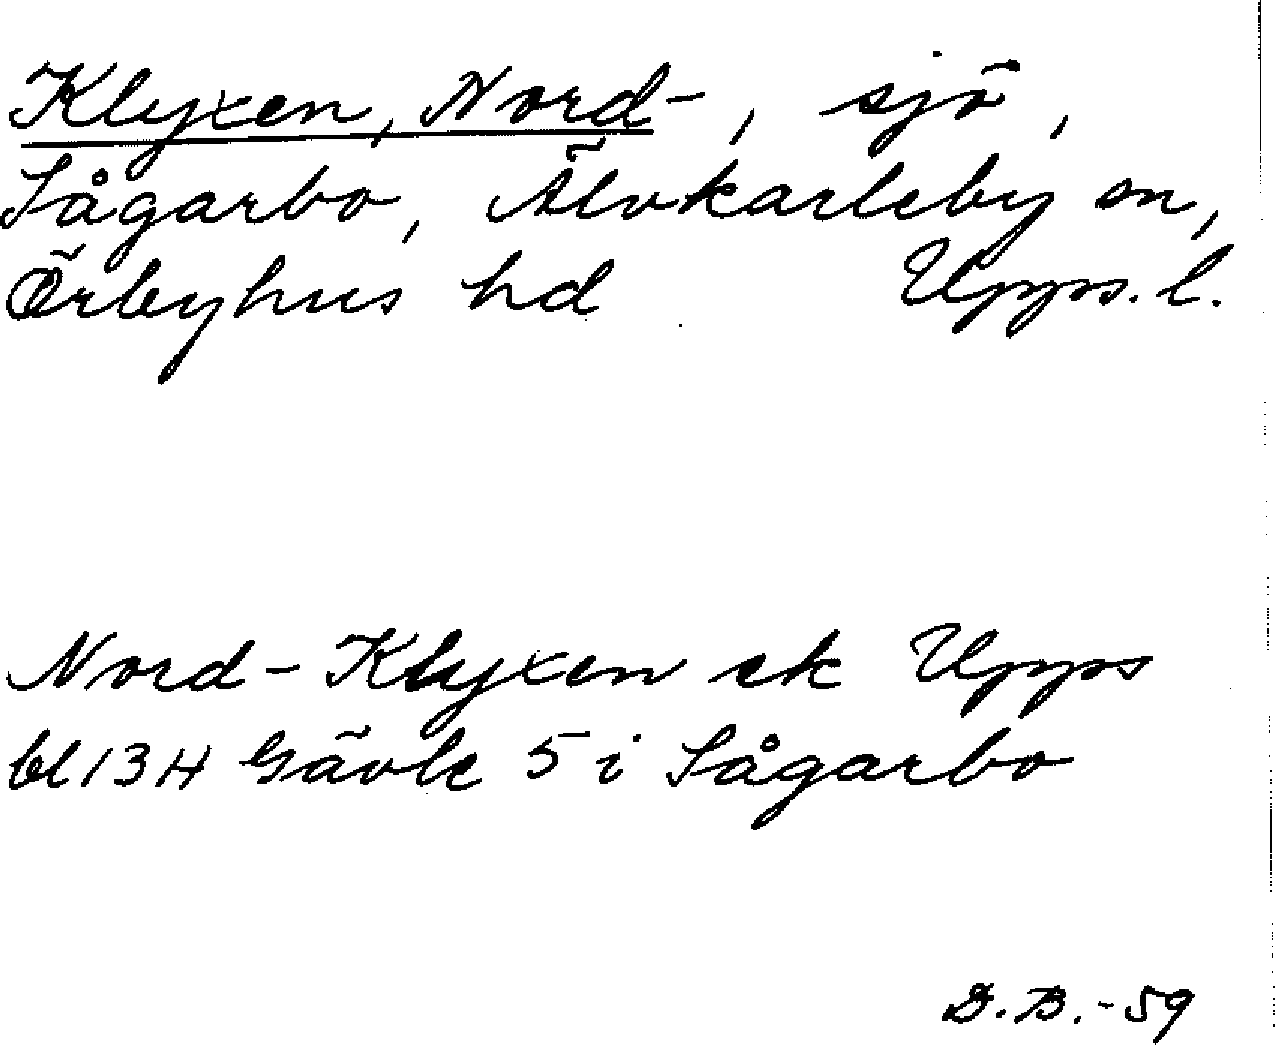 Klyxen, Nord-, sjö,
Sågarbo, Älvkarleby sn,
Örbyhus hd Upps. l.
Nord-Klyxen ek Upps
bl 13 H Gävle 5 i Sågarbo
D.B.-59